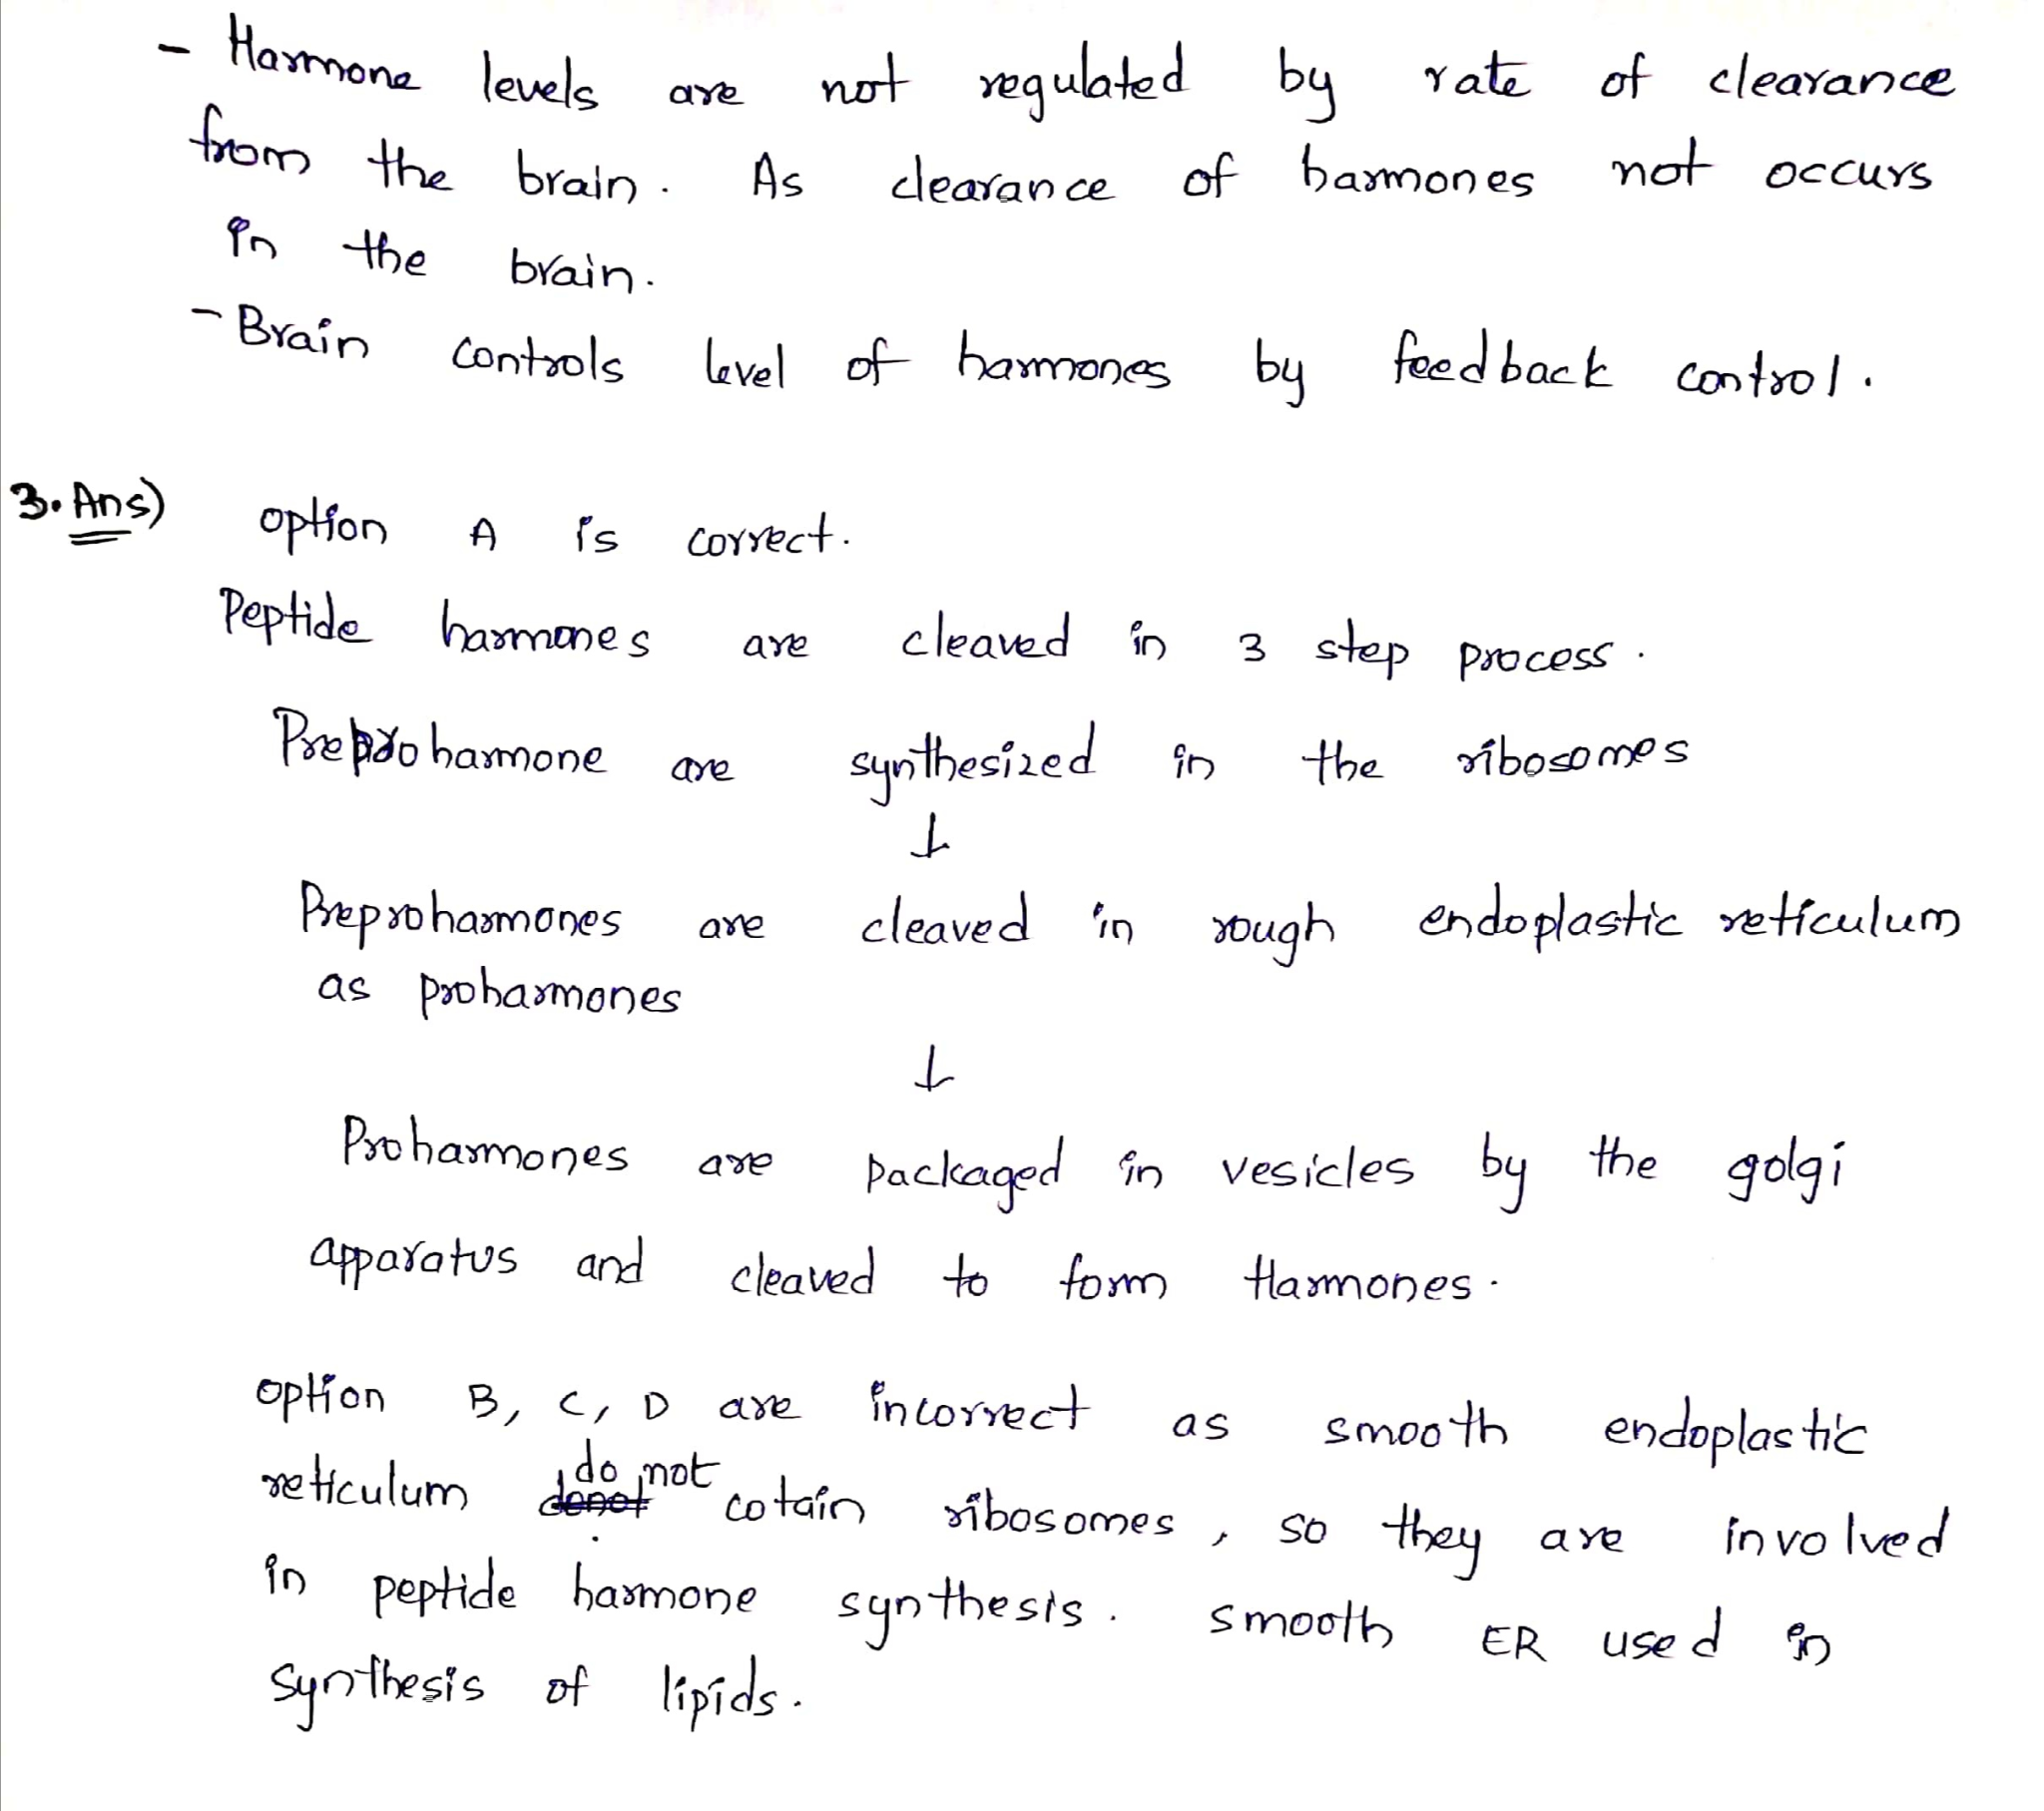 - Harmone levels are not regulated by rate of clearance
from the brain. As clearance of harmones not occurs
in the brain.
- Brain controls level of harmones by feedback control.
3. Ans) option A is correct.
Peptide harmones are cleaved in 3 step process.
Preproharmone are synthesized in the ribosomes
↓
Preproharmones are cleaved in rough endoplastic reticulum
as proharmones
↓
Proharmones are packaged in vesicles by the golgi
apparatus and cleaved to form Harmones.
option B, C, D are incorrect as smooth endoplastic
reticulum do not cotain ribosomes, so they are involved
in peptide harmone synthesis. smooth ER used in
synthesis of lipids.